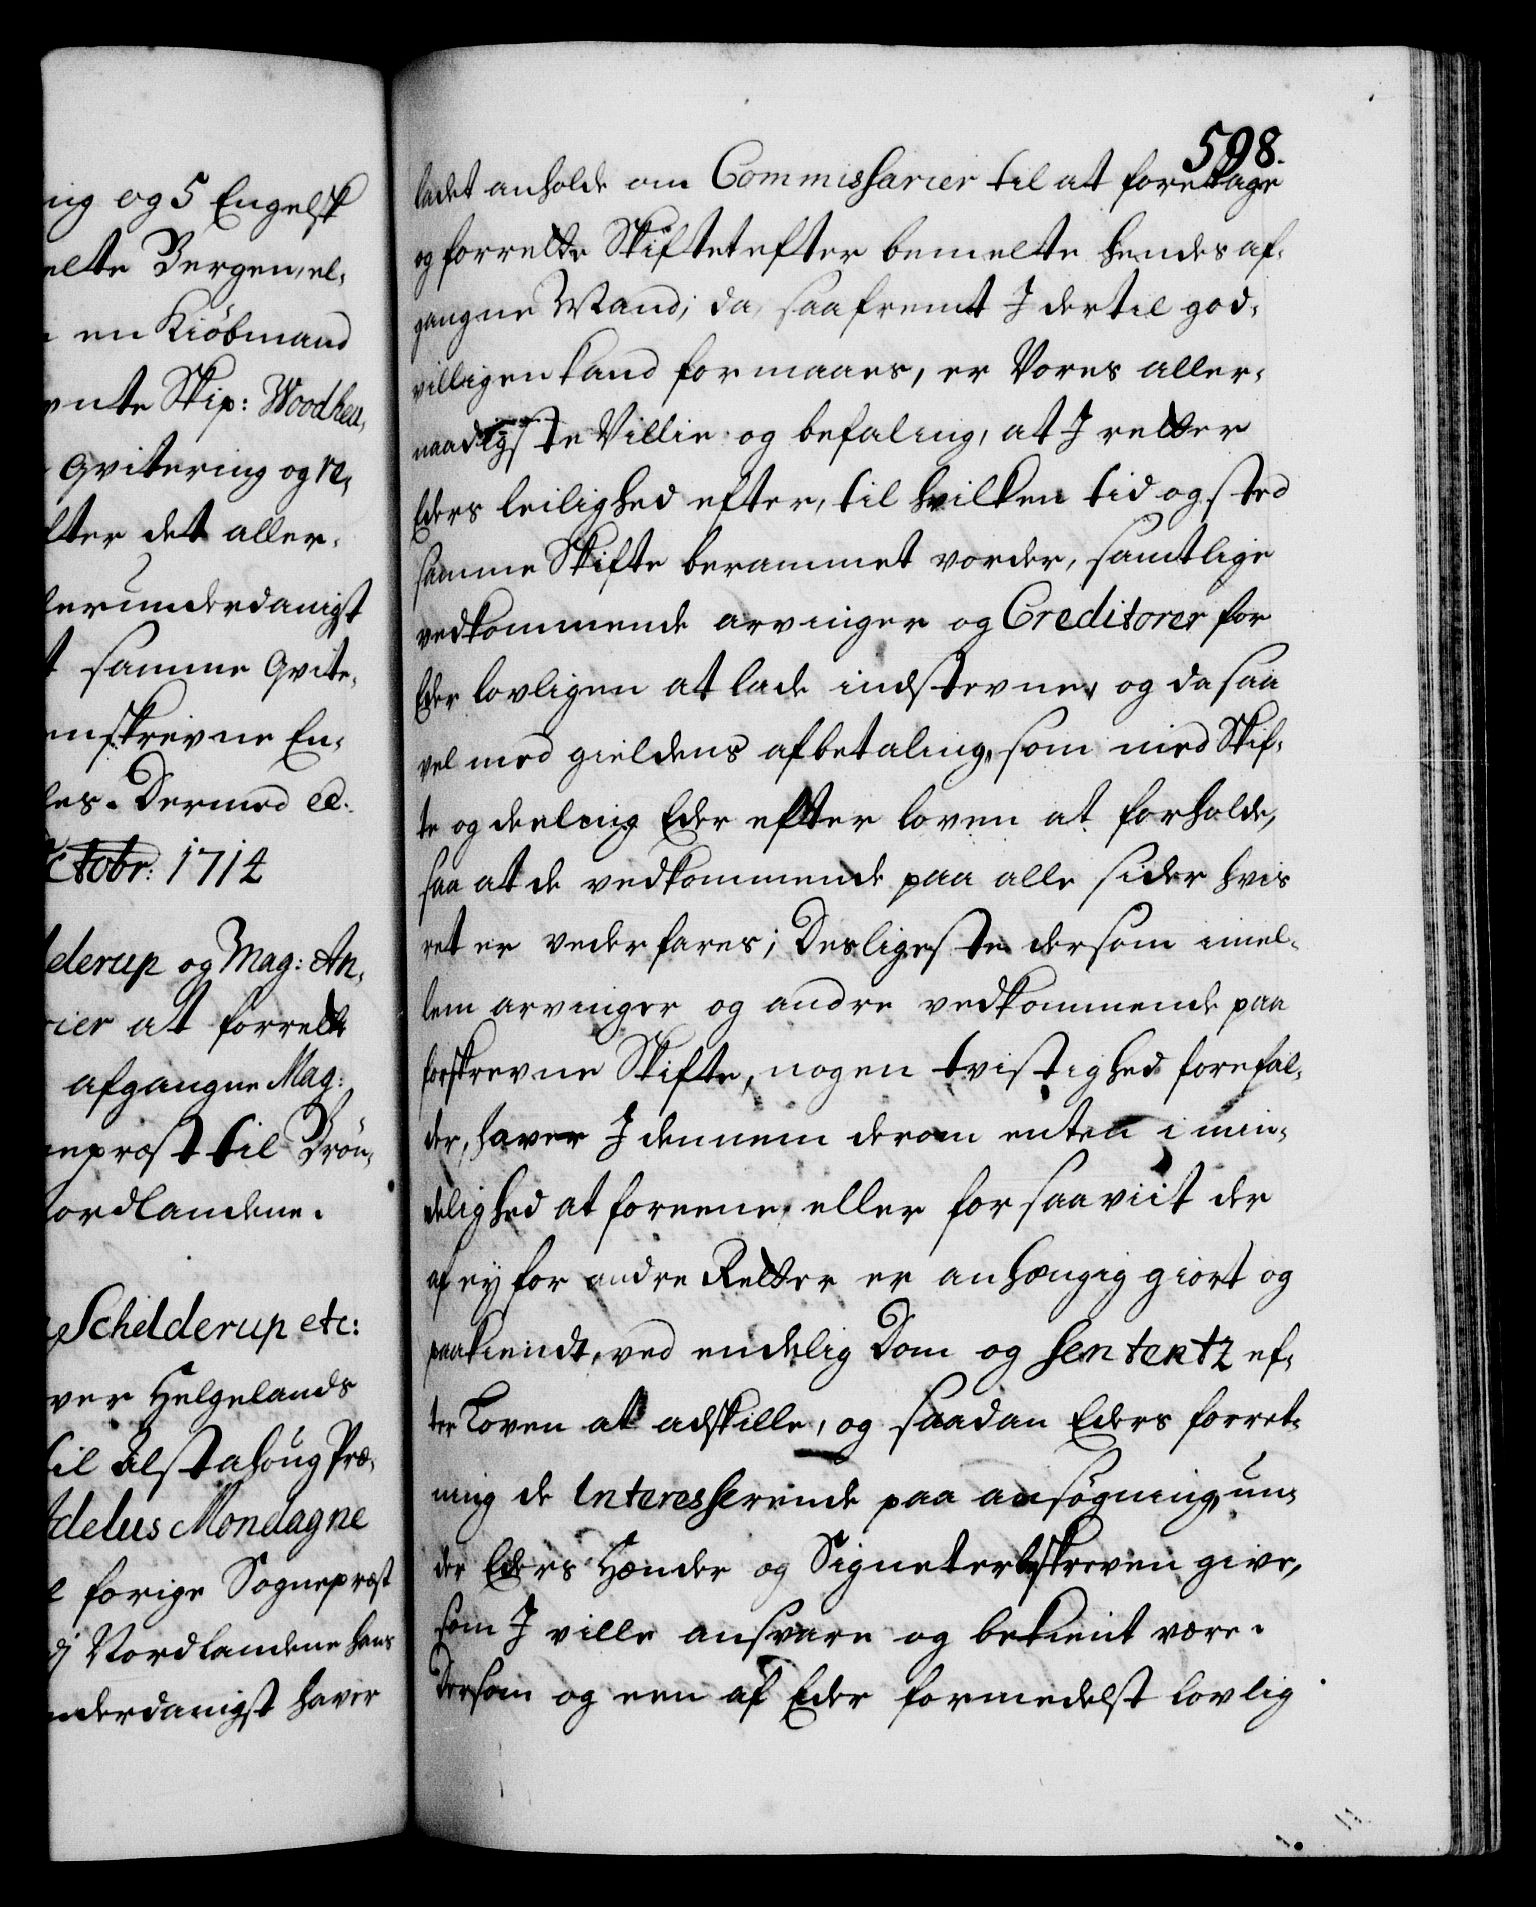 ing og 5 Engelsk
elte Bergen, el-
en Kiöbmand
vnte Skip: Woodhea,
Qvitering og re,
fter det aller-
lerunderdanigst
t samme Qvite-
enskrevne En-
les. Dermed etc.
Octobr: 1714
lderup og Mag: An,
rier at forrette
afgangne Mag:
nepræst til Brön,
Nordlandene.
Schelderup etc:
ver Helgelands
til Alstahoug Præ,
delus Mondagne
e forige Sognepræst
dj Nordlandene hans
nderdanigst haver
598.
ladet anholde om Commissarier til at foretage
og forrette Skiftet efter bemelte hendes af-
gangne Mand; da, saafremt J dertil god-
villigen kand formaaes, er Vores aller-
naadigste Villie og befaling, at J retter
Eders leilighed efter, til hvilken tid og sted
samme Skifte berammet vorder, samtlige
vedkommende arvinger og Creditorer for
Eder lovligen at lade indstevne, og da saa
vel med gieldens afbetaling, som med Skif-
te og deeling Eder efter loven at forholde,
saa at de vedkommende paa alle sider hvis
ret er vederfares; Desligeste dersom imel-
lem arvinger og andre vedkommende paa
forskrevne Skifte, nogen tvistighed forefal-
der, haver J dennem derom enten i min-
delighed at foreene, eller for saaviit der
af ey for andre Retter er anhængig giort og
paakiendt, ved endelig Dom og Sententz ef-
ter Loven at adskille, og saadan Eders forret-
ning de Interesserende paa ansögning, un-
der Eders Hænder og Signeter beskreven give,
som J ville ansvare og bekient være.
Dersom og een af Eder formedelst lovlig